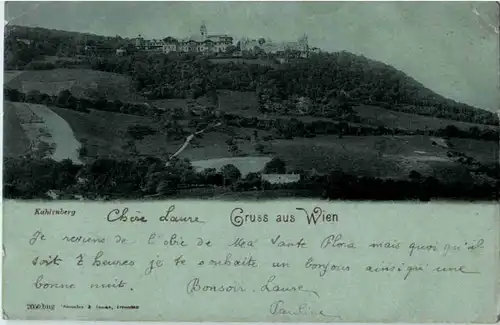 Kahlenberg
Chère Laure
Gruss aus Wien
Je reviens de l'obie de Ma Tante Flora mais quoi qu'il
soit 7 heures je te souhaite un bonjour ainsi qu'une
bonne nuit. Bonsoir Laure
Pauline